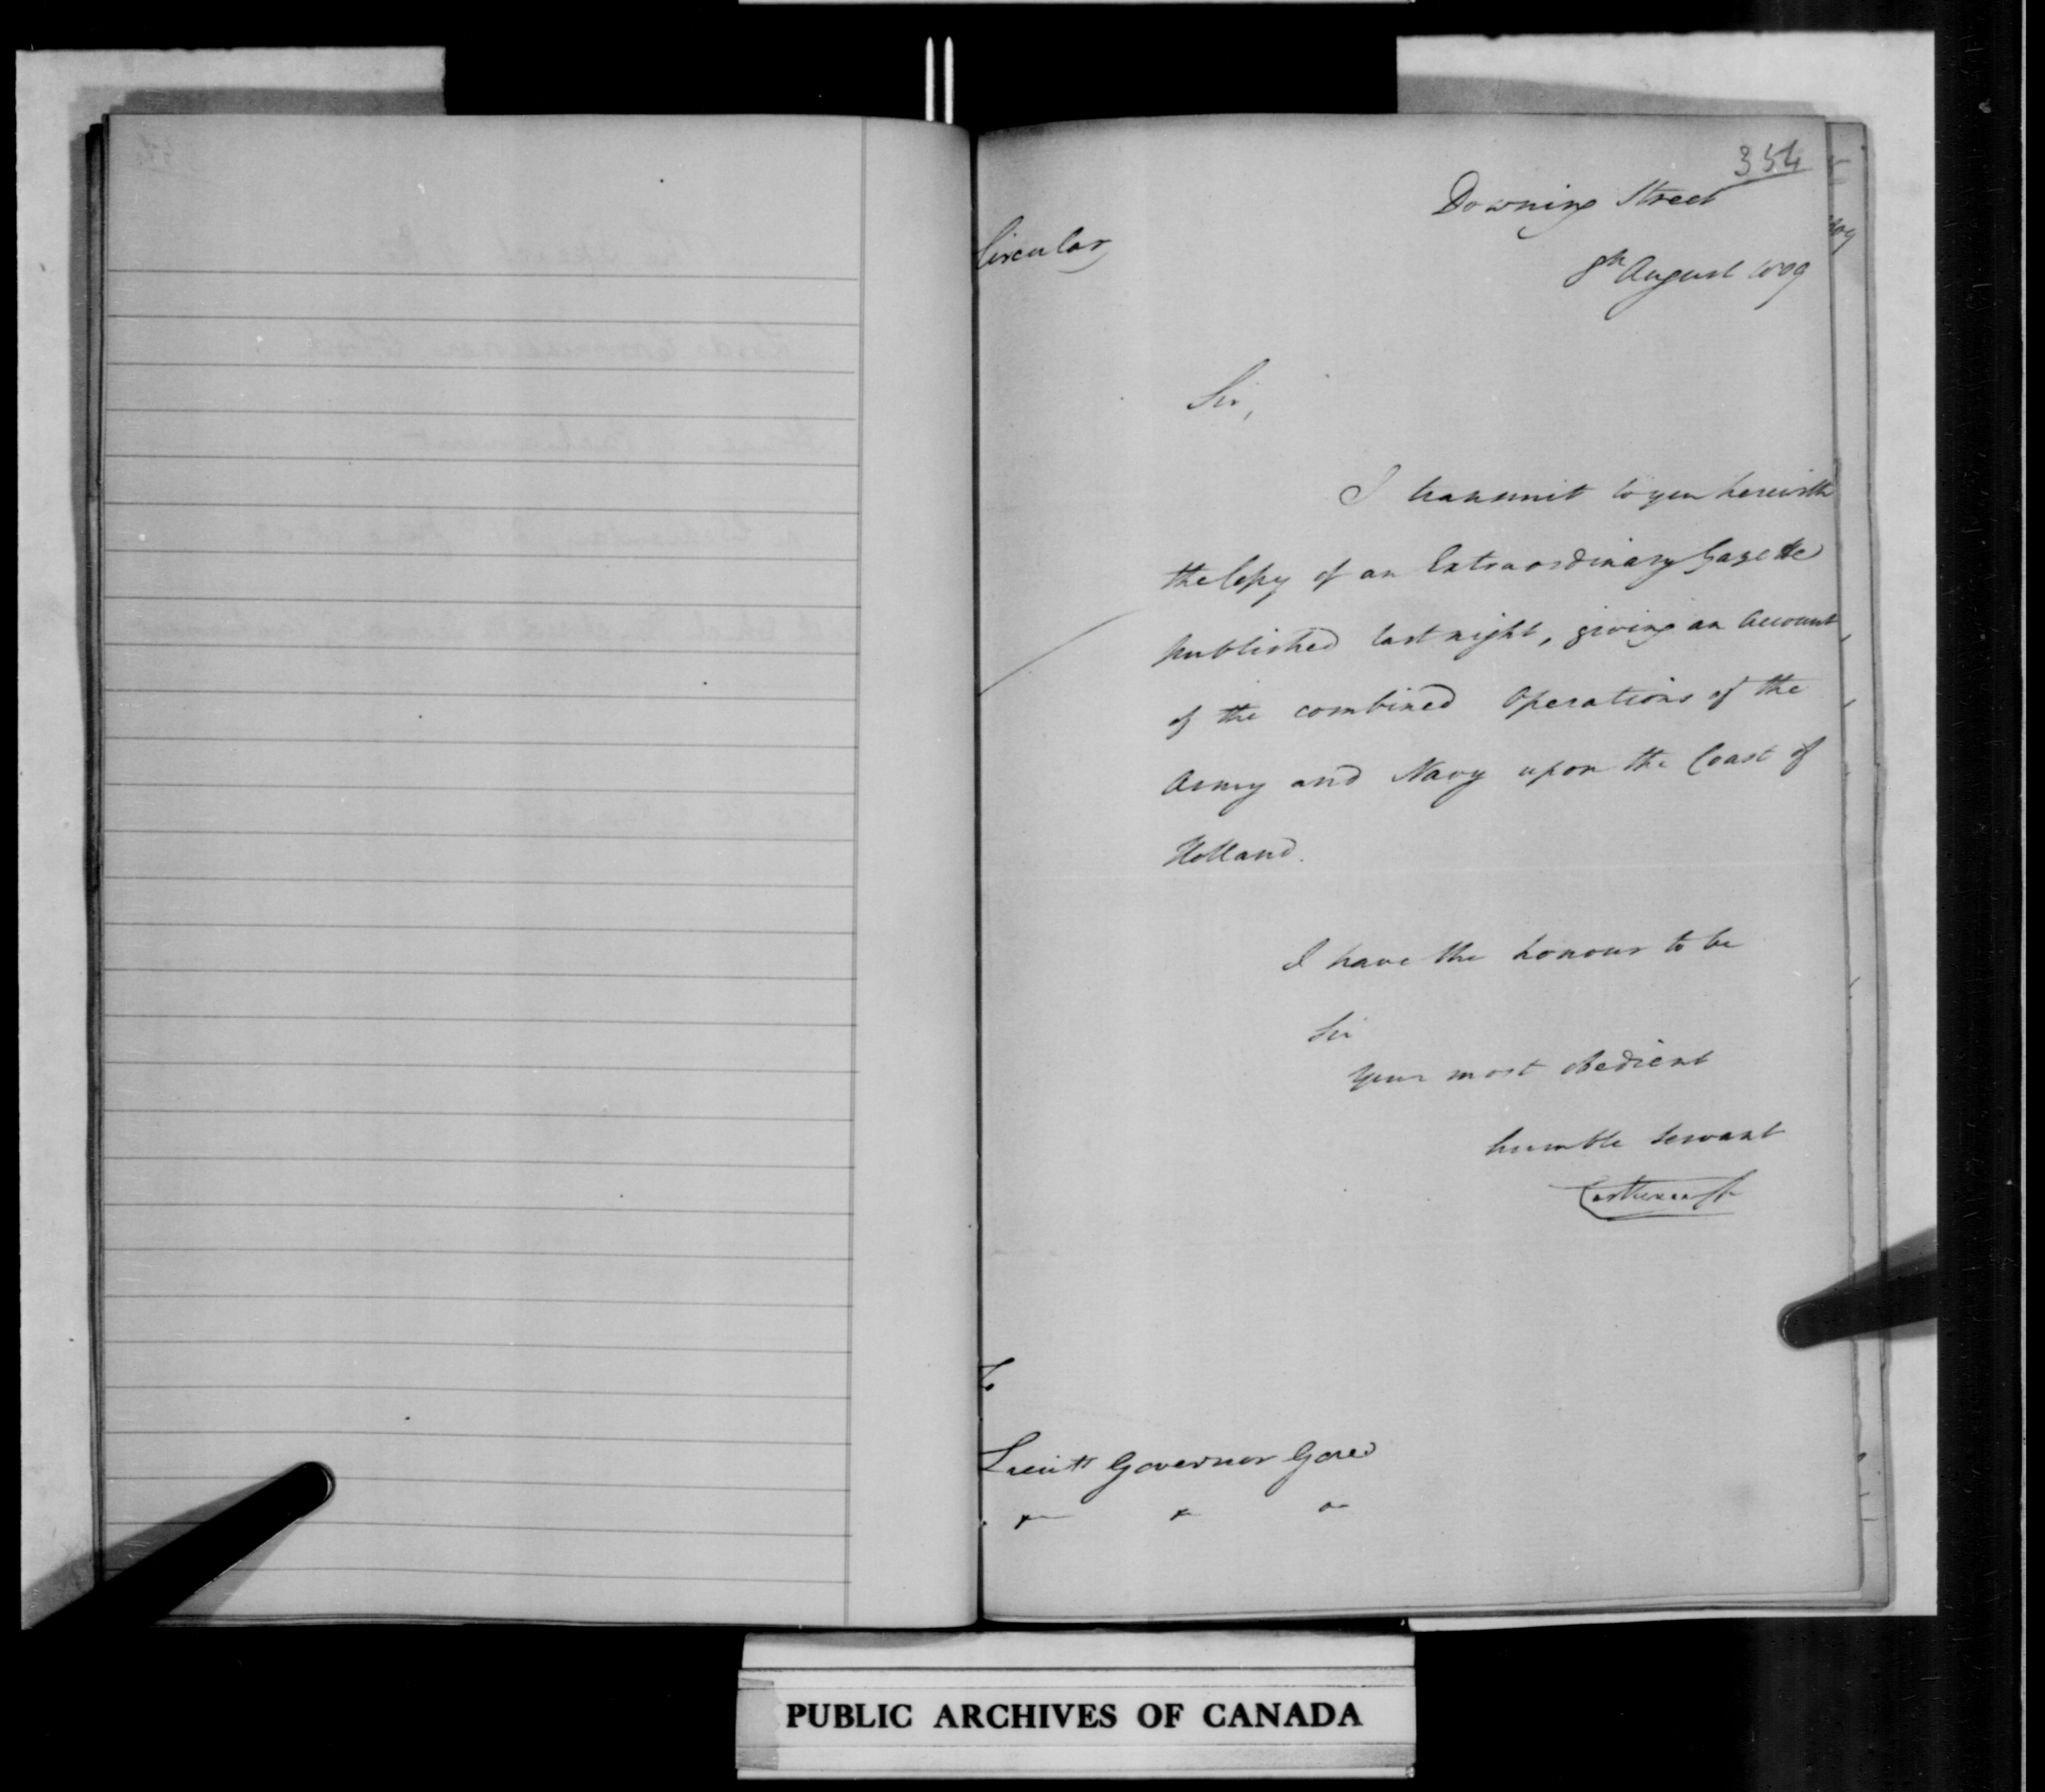 354
Downing Street
Circular
8th August 1809
Sir,
I transmit to you herewith
the Copy of an Extraordinary Gazette
published last night, giving an Account
of the combined Operations of the
Army and Navy upon the Coast of
Holland.
I have the honour to be
Sir
Your most obedient
humble servant
Castlereagh
To
Lieutt Governor Gore
PUBLIC ARCHIVES OF CANADA